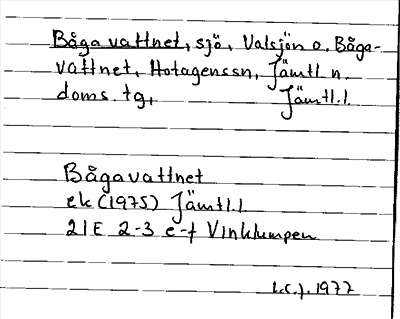 Bågavattnet, sjö, Valsjön o. Båga-
vattnet, Hotagenssn, Jämtl. n.
doms. tg, Jämtl.l.
Bågavattnet
ek (1975) Jämtl.l
21E 2-3 e-f Vinklumpen
1977